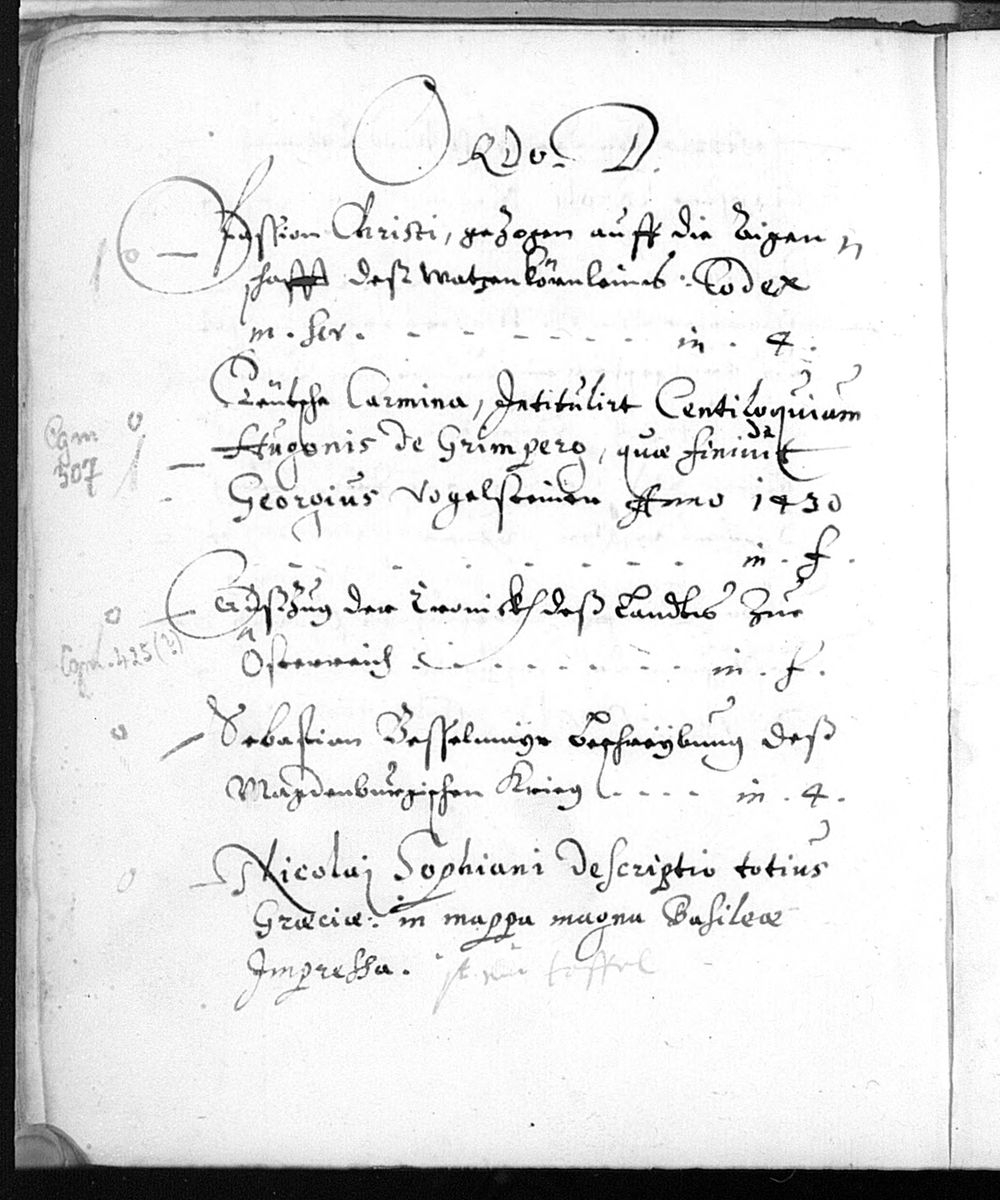 Ordo. D.
Passion Christi, gezogen auff die Aigen
schafft deß Waitzenkörnleins. Codex
m. scr. - - - - - - - in . 4.
Teütsche Carmina, Intitulirt Centiloquium
Cgm
507
Hugonis de Grimperg, quæ finiuit
Georgius Vogelsteiner Anno 1430
- - - - - - - in . f.
Außzug der Cronickh deß Landts zue
Cgm. 425(?)
Österreich - - - - - - - in . f.
Sebastian Besselmayr Beschreybung deß
Magdenburgischen Krieg - - - - in . 4.
Nicolaj Sophiani Descriptio totius
Græciæ: in mappa magna Basileæ
Impressa. ist ein taffel